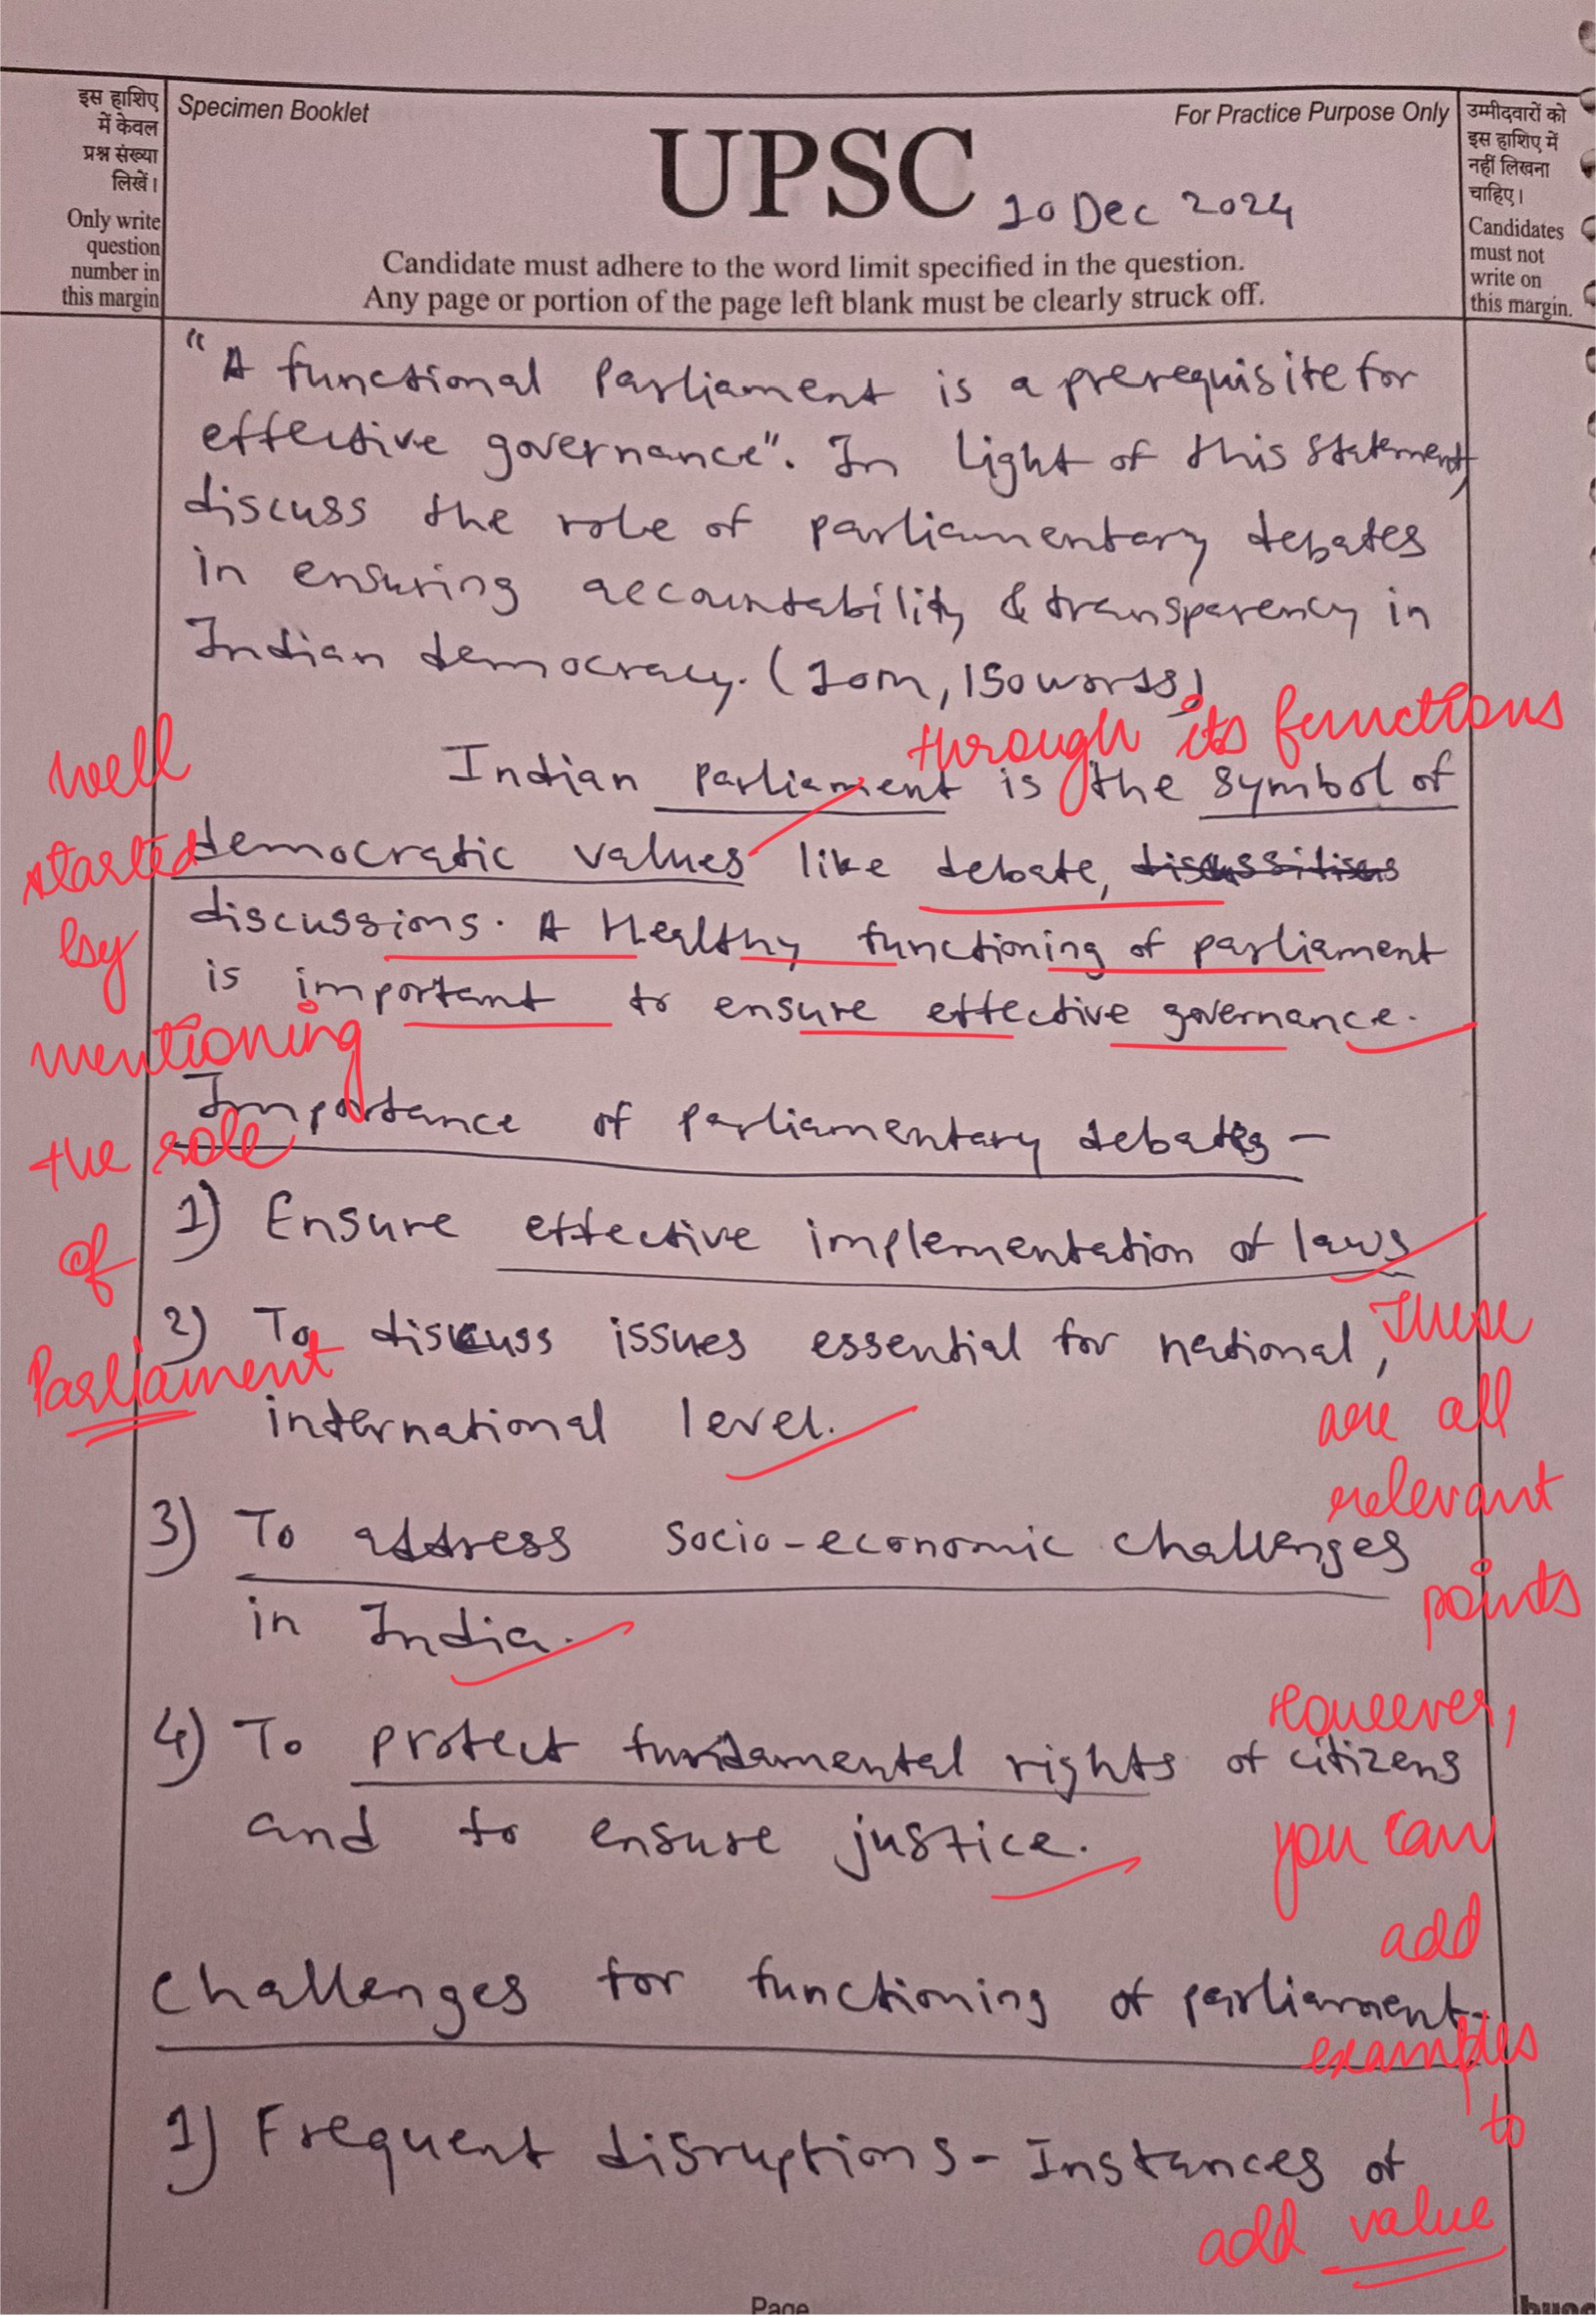 इस हाशिए
में केवल
प्रश्न संख्या
लिखें।
Only write
question
number in
this margin
Specimen Booklet
For Practice Purpose Only
UPSC
10 Dec 2024
Candidate must adhere to the word limit specified in the question.
Any page or portion of the page left blank must be clearly struck off.
उम्मीदवारों को
इस हाशिए में
नहीं लिखना
चाहिए।
Candidates
must not
write on
this margin.
"A functional Parliament is a prerequisite for
effective governance". In light of this statement,
discuss the role of parliamentary debates
in ensuring accountability & transparency in
Indian democracy. (10m, 150 words)
through its functions
Indian Parliament is the symbol of
democratic values like debate,
discussions. A Healthy functioning of parliament
is important to ensure effective governance.
well
started
by
mentioning
the role
of
Parliament
Importance of Parliamentary debates -
1) Ensure effective implementation of laws
2) To discuss issues essential for national,
international level.
3) To address socio-economic challenges
in India.
4) To protect fundamental rights of citizens
and to ensure justice.
These
are all
relevant
points
However,
you can
add
examples
to
add value
Challenges for functioning of parliament-
1) Frequent disruptions - Instances of
Page